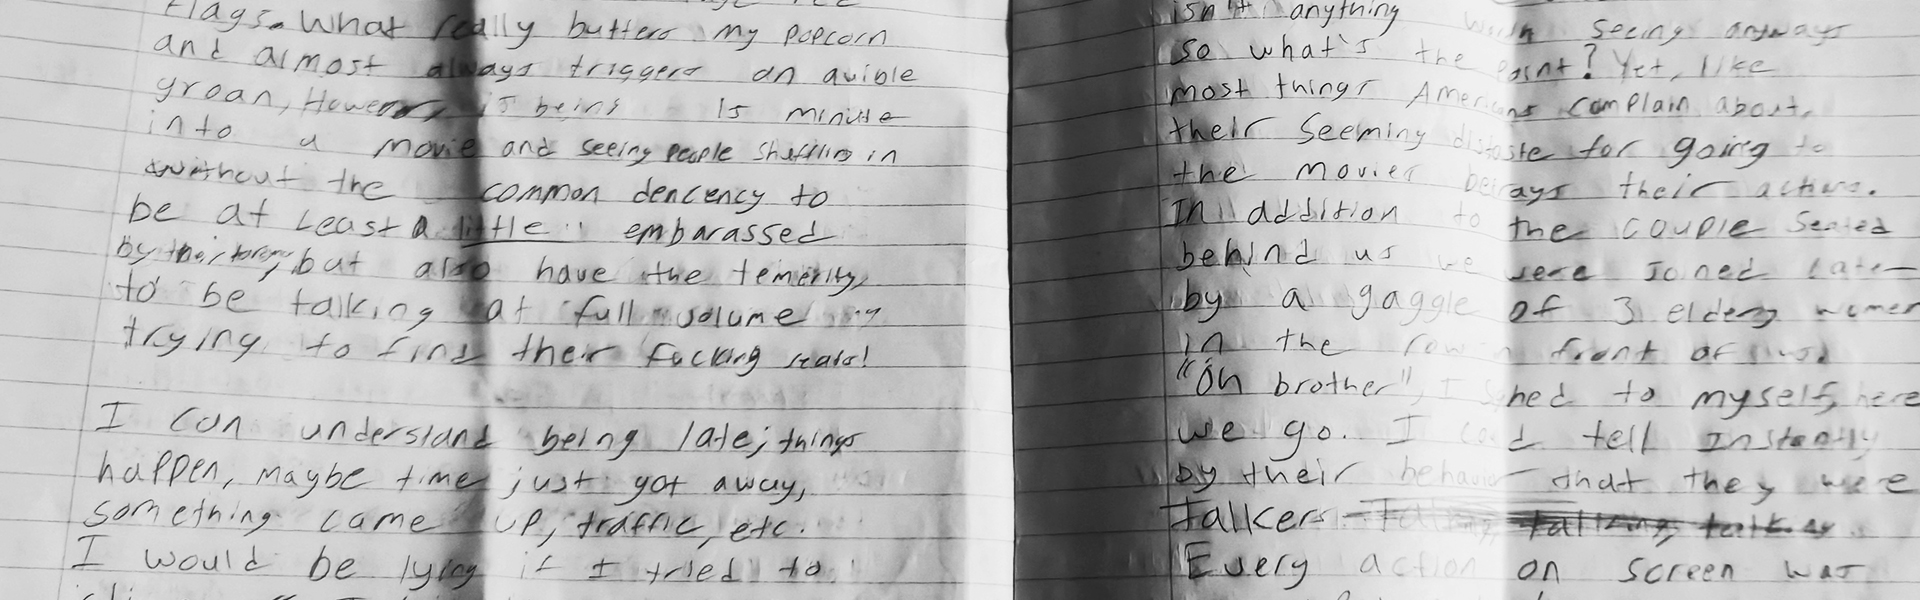 Flags. What really butters my popcorn
and almost always triggers an auible
groan, However, is being 15 minute
into a movie and seeing people shuffling in
without the common dencency to
be at Least a little embarassed
by their, but also have the temerity
to be talking at full volume
trying to find their fucking seats!
I can understand being late; things
happen, maybe time just got away,
something came up, traffic, etc.
I would be lying if I tried to
isn't anything worth seeing anyways
so what's the point? Yet, like
most things Americans complain about,
their seeming distaste for going to
the movies betrays their actions.
In addition to the couple seated
behind us we were joined late
by a gaggle of 3 elderly women
in the row in front of us.
"Oh brother", I sighed to myself, here
we go. I could tell Instantly
by their behavior that they were
Talkers. talking, talking
Every action on screen was